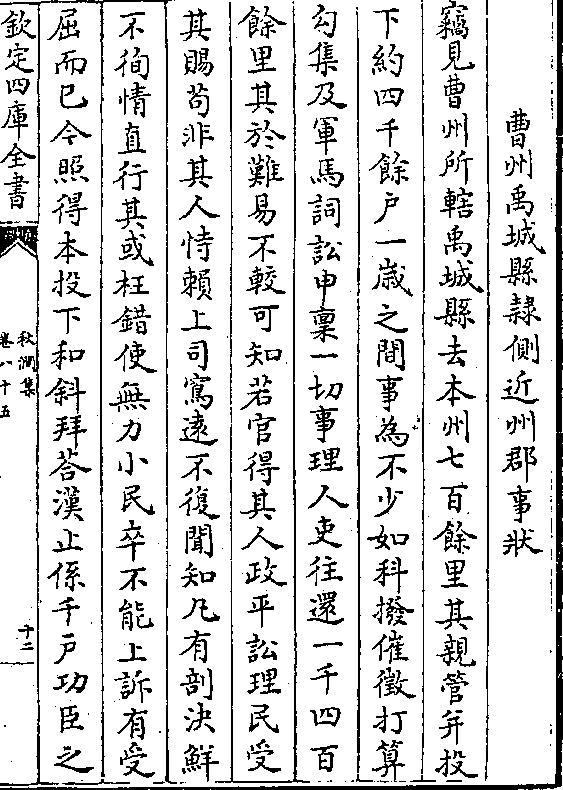 曹州禹城縣隷側近州郡事狀
竊見曹州所轄禹城縣去本州七百餘里其親管并投
下約四千餘户一歳之間事為不少如科撥催徴打算
勾集及軍馬詞訟申稟一切事理人吏往還一千四百
餘里其於難易不較可知若官得其人政平訟理民受
其賜苟非其人恃賴上司寫遠不復聞知凡有剖決鮮
不徇情直行其或枉錯使無力小民卒不能上訴有受
屈而已今照得本投下和斜拜荅漢止係千户功臣之
欽定四庫全書
秋澗集
卷八十五
十二